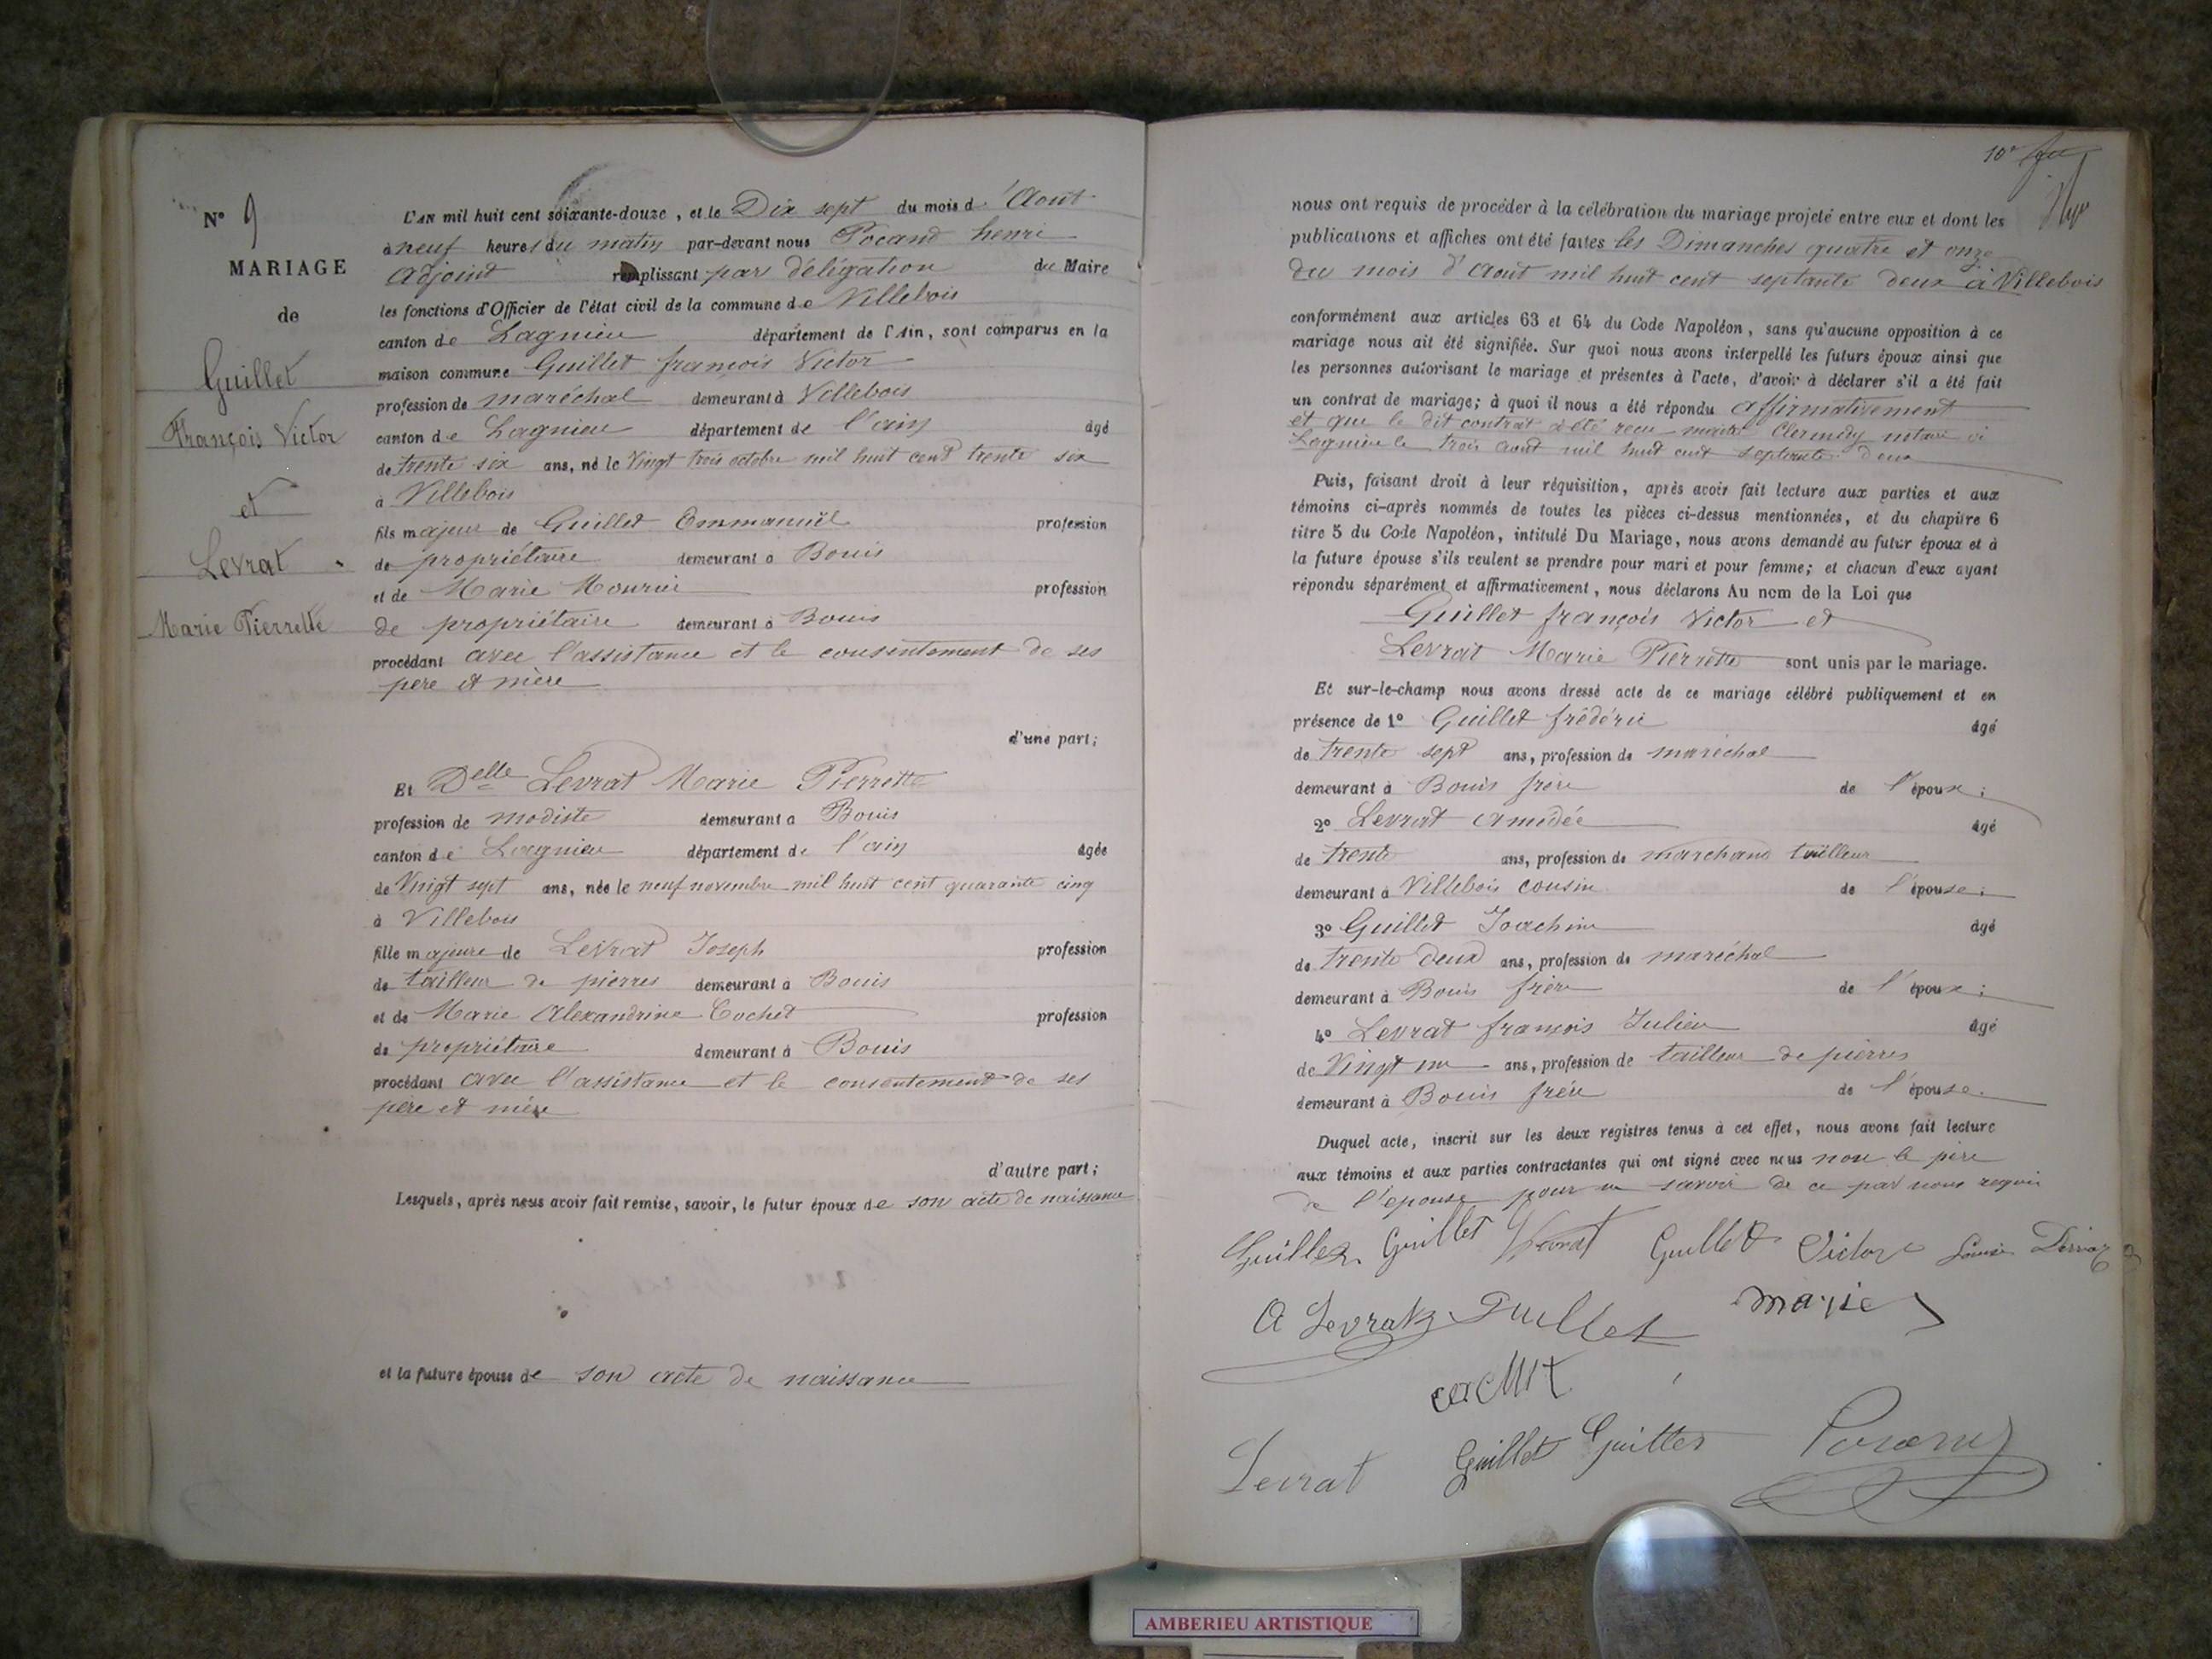 N° 9
MARIAGE
de
Guillet
François Victor
et
Levrat
Marie Pierrette
L'an mil huit cent soixante-douze, et le Dix sept du mois d'Aout
à neuf heures du matin par-devant nous Pocand henri
Adjoint remplissant par délégation du Maire
les fonctions d'Officier de l'état civil de la commune de Villebois
canton de Lagnieu département de l'Ain, sont comparus en la
maison commune Guillet françois Victor
profession de maréchal demeurant à Villebois
canton de Lagnieu département de l'ain âgé
de trente six ans, né le Vingt trois octobre mil huit cent trente six
à Villebois
fils majeur de Guillet Emmanuël profession
de propriétaire demeurant à Bouis
et de Marie Mourier profession
de propriétaire demeurant à Bouis
procédant avec l'assistance et le consentement de ses
père et mère
d'une part;
Et Delle Levrat Marie Pierrette
profession de modiste demeurant à Bouis
canton de Lagnieu département de l'ain âgée
de Vingt sept ans, née le neuf novembre mil huit cent quarante cinq
à Villebois
fille majeure de Levrat Joseph profession
de tailleur de pierres demeurant à Bouis
et de Marie Alexandrine Cochet profession
de propriétaire demeurant à Bouis
procédant avec l'assistance et le consentement de ses
père et mère
d'autre part;
Lesquels, après nous avoir fait remise, savoir, le futur époux de son acte de naissance
et la future épouse de son acte de naissance
10e
nous ont requis de procéder à la célébration du mariage projeté entre eux et dont les
publications et affiches ont été faites les Dimanches quatre et onze
du mois d'Aout mil huit cent septante deux à Villebois
conformément aux articles 63 et 64 du Code Napoléon, sans qu'aucune opposition à ce
mariage nous ait été signifiée. Sur quoi nous avons interpellé les futurs époux ainsi que
les personnes autorisant le mariage et présentes à l'acte, d'avoir à déclarer s'il a été fait
un contrat de mariage; à quoi il nous a été répondu affirmativement
et que le dit contrat a été reçu notaire à
Lagnieu le trois aout mil huit cent septante deux
Puis, faisant droit à leur réquisition, après avoir fait lecture aux parties et aux
témoins ci-après nommés de toutes les pièces ci-dessus mentionnées, et du chapitre 6
titre 5 du Code Napoléon, intitulé Du Mariage, nous avons demandé au futur époux et à
la future épouse s'ils veulent se prendre pour mari et pour femme; et chacun d'eux ayant
répondu séparément et affirmativement, nous déclarons Au nom de la Loi que
Guillet françois Victor et
Levrat Marie Pierrette sont unis par le mariage.
Et sur-le-champ nous avons dressé acte de ce mariage célébré publiquement et en
présence de 1° Guillet frédéric âgé
de trente sept ans, profession de maréchal
demeurant à Bouis frère de l'époux;
2° Levrat Amédée âgé
de trente ans, profession de marchand tailleur
demeurant à Villebois cousin de l'épouse;
3° Guillet Joachim âgé
de trente deux ans, profession de maréchal
demeurant à Bouis frère de l'époux;
4° Levrat françois Julien âgé
de Vingt un ans, profession de tailleur de pierres
demeurant à Bouis frère de l'épouse.
Duquel acte, inscrit sur les deux registres tenus à cet effet, nous avons fait lecture
aux témoins et aux parties contractantes qui ont signé avec nous non le père
de l'épouse pour ne savoir de ce par nous requis
Guillet Guillet Levrat Guillet Victor
A Levrat Guillet marie
Levrat Guillet Guillet Pocand
AMBERIEU ARTISTIQUE